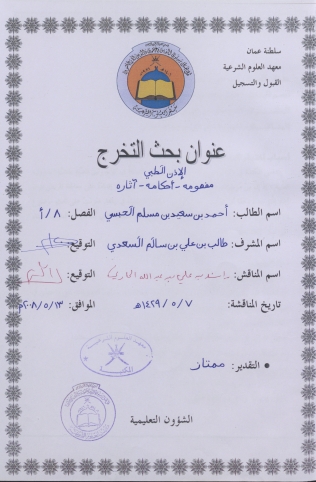 سلطنة عمان
معهد العلوم الشرعية
القبول والتسجيل
عنوان بحث التخرج
الإذن الطبي
مفهومه - أحكامه - آثاره
اسم الطالب: أحمد بن سعيد بن مسلم الحبسي الفصل: ٨/أ
اسم المشرف: طالب بن علي بن سالم السعدي التوقيع:
اسم المناقش: راشد بن علي بن عبد الله التوقيع:
تاريخ المناقشة: ١٤٢٩/٥/٧هـ الموافق: ٢٠٠٨/٥/١٣م
• التقدير: ممتاز
الشؤون التعليمية